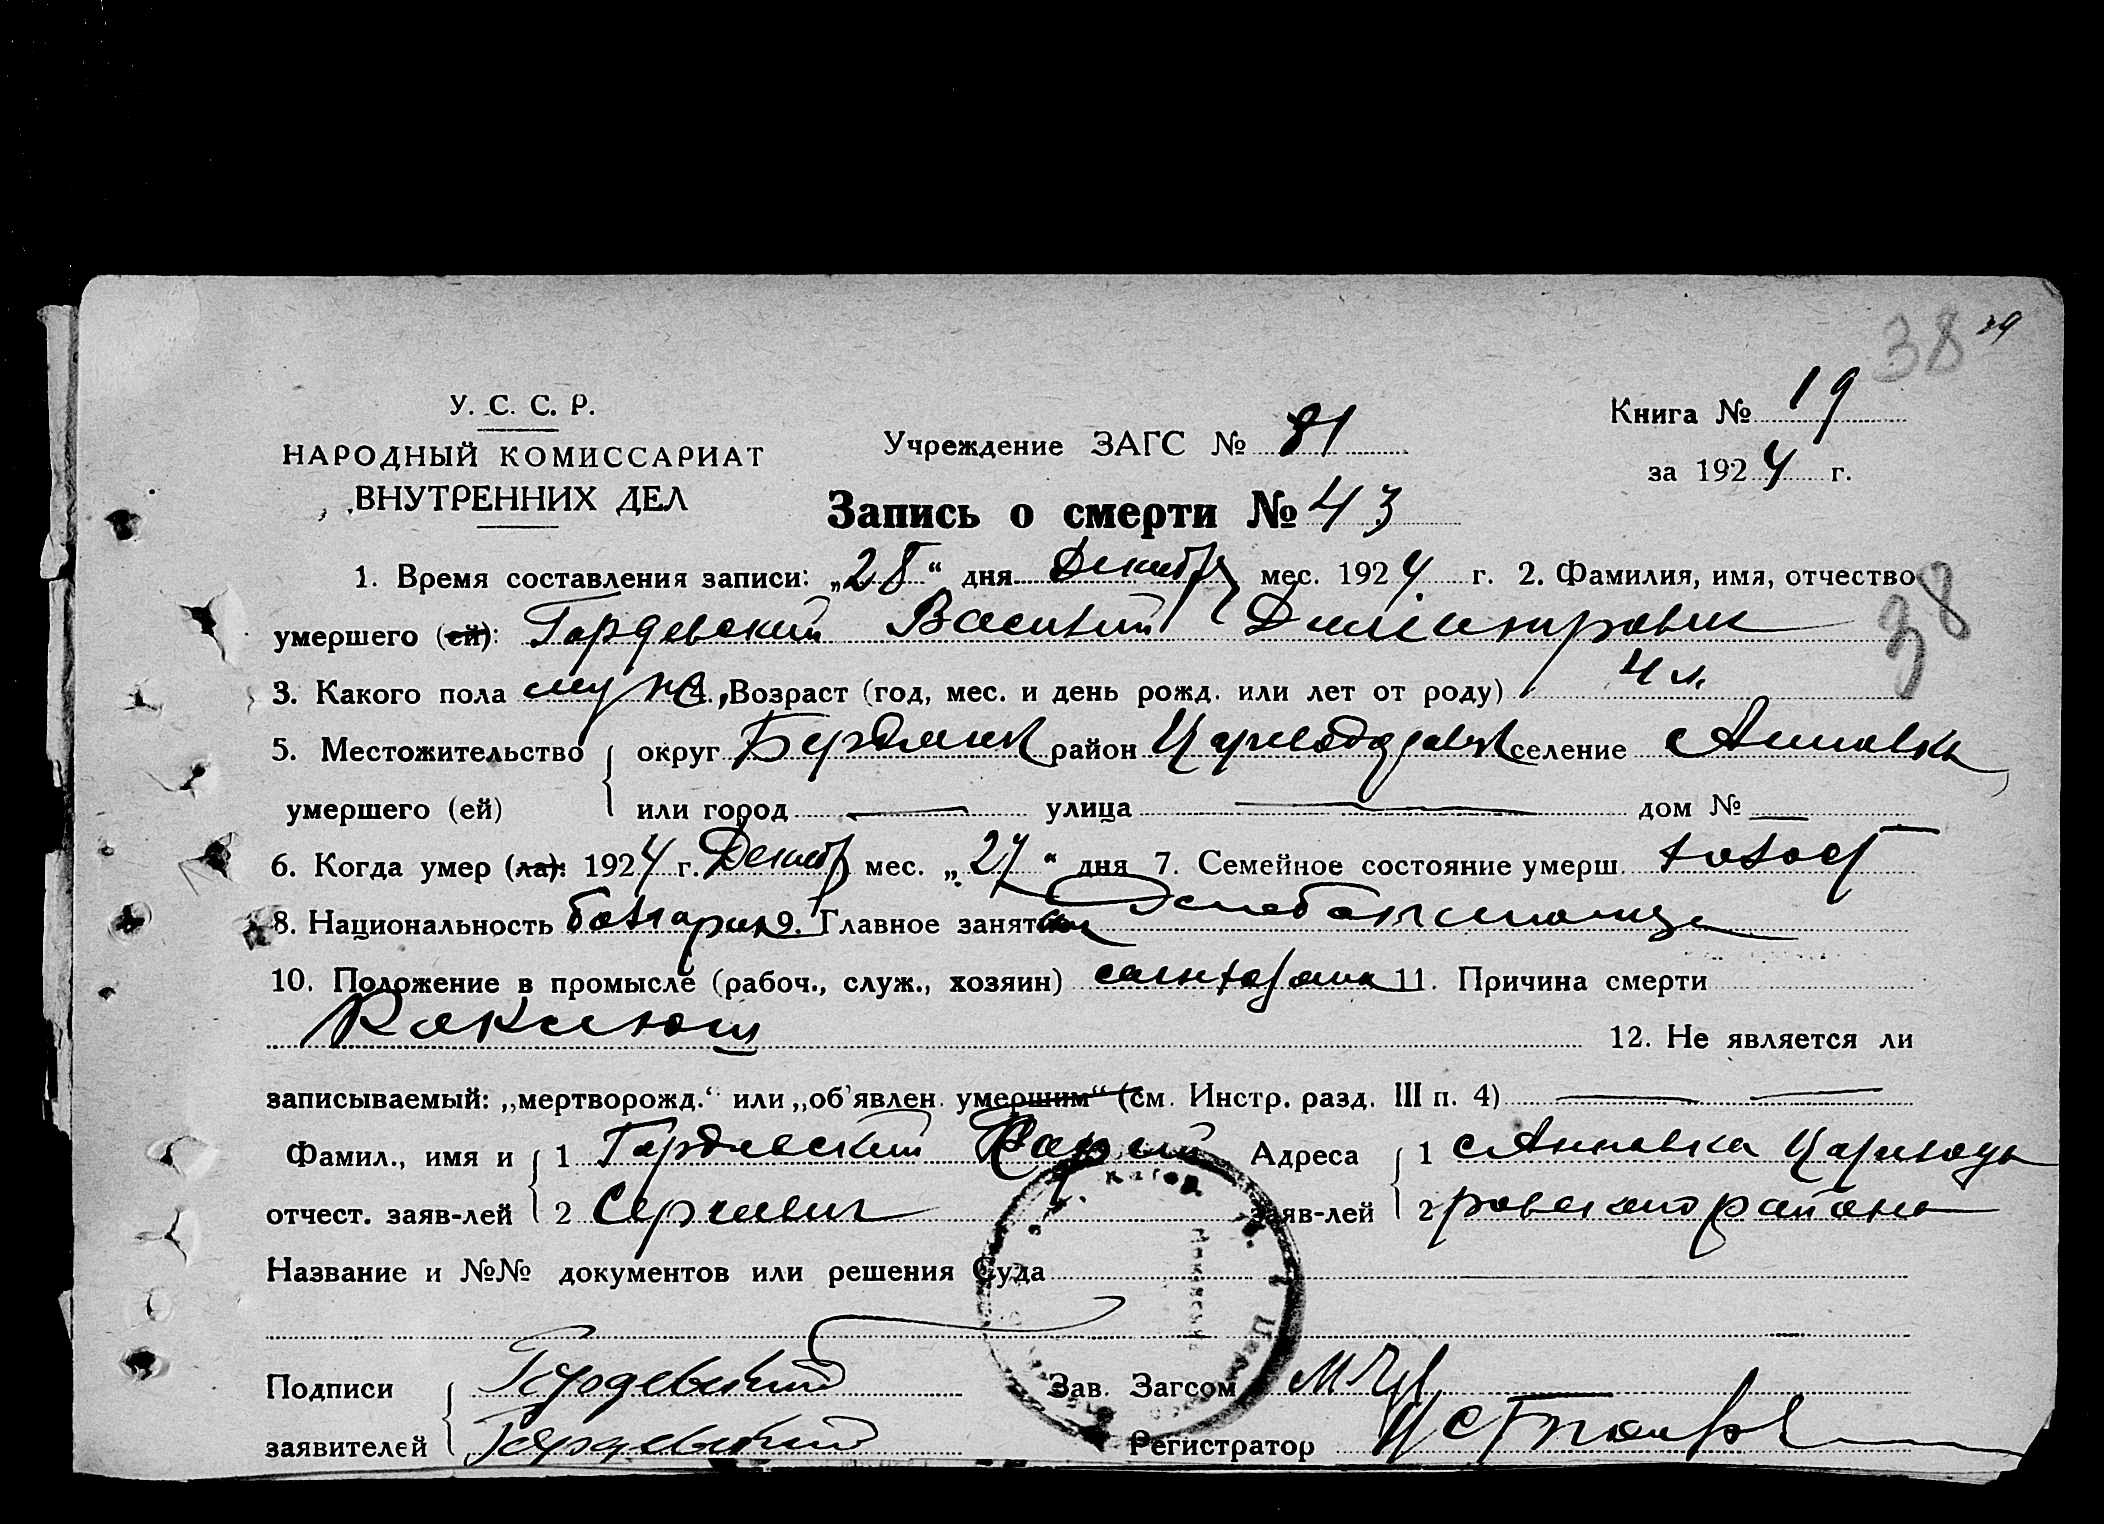 38 29
У. С. С. Р.
НАРОДНЫЙ КОМИССАРИАТ
ВНУТРЕННИХ ДЕЛ
Учреждение ЗАГС № 81
Книга № 19
за 1924 г.
Запись о смерти № 43
1. Время составления записи: „28“ дня Декабр мес. 1924 г. 2. Фамилия, имя, отчество
умершего (ей): Гордевский Василий Димитрович
38
3. Какого пола муж., Возраст (год, мес. и день рожд. или лет от роду) 4 л.
5. Местожительство округ Бердянск район селение с Анновка
умершего (ей) или город — улица — дом № —
6. Когда умер (ла): 1924 г. Декабр мес. „27“ дня 7. Семейное состояние умерш. холост
8. Национальность болгарин 9. Главное занятие
10. Положение в промысле (рабоч., служ., хозяин) 11. Причина смерти
Коклюш
12. Не является ли
записываемый: „мертворожд.“ или „об'явлен. умершим“ (см. Инстр. разд. III п. 4) — —
Фамил., имя и 1 Гордевский Адреса 1 с Анновка
отчест. заяв-лей 2 Сергеевич заяв-лей 2 района
Название и №№ документов или решения Суда
Подписи Гордевский Зав. Загсом
заявителей Гордевский Регистратор